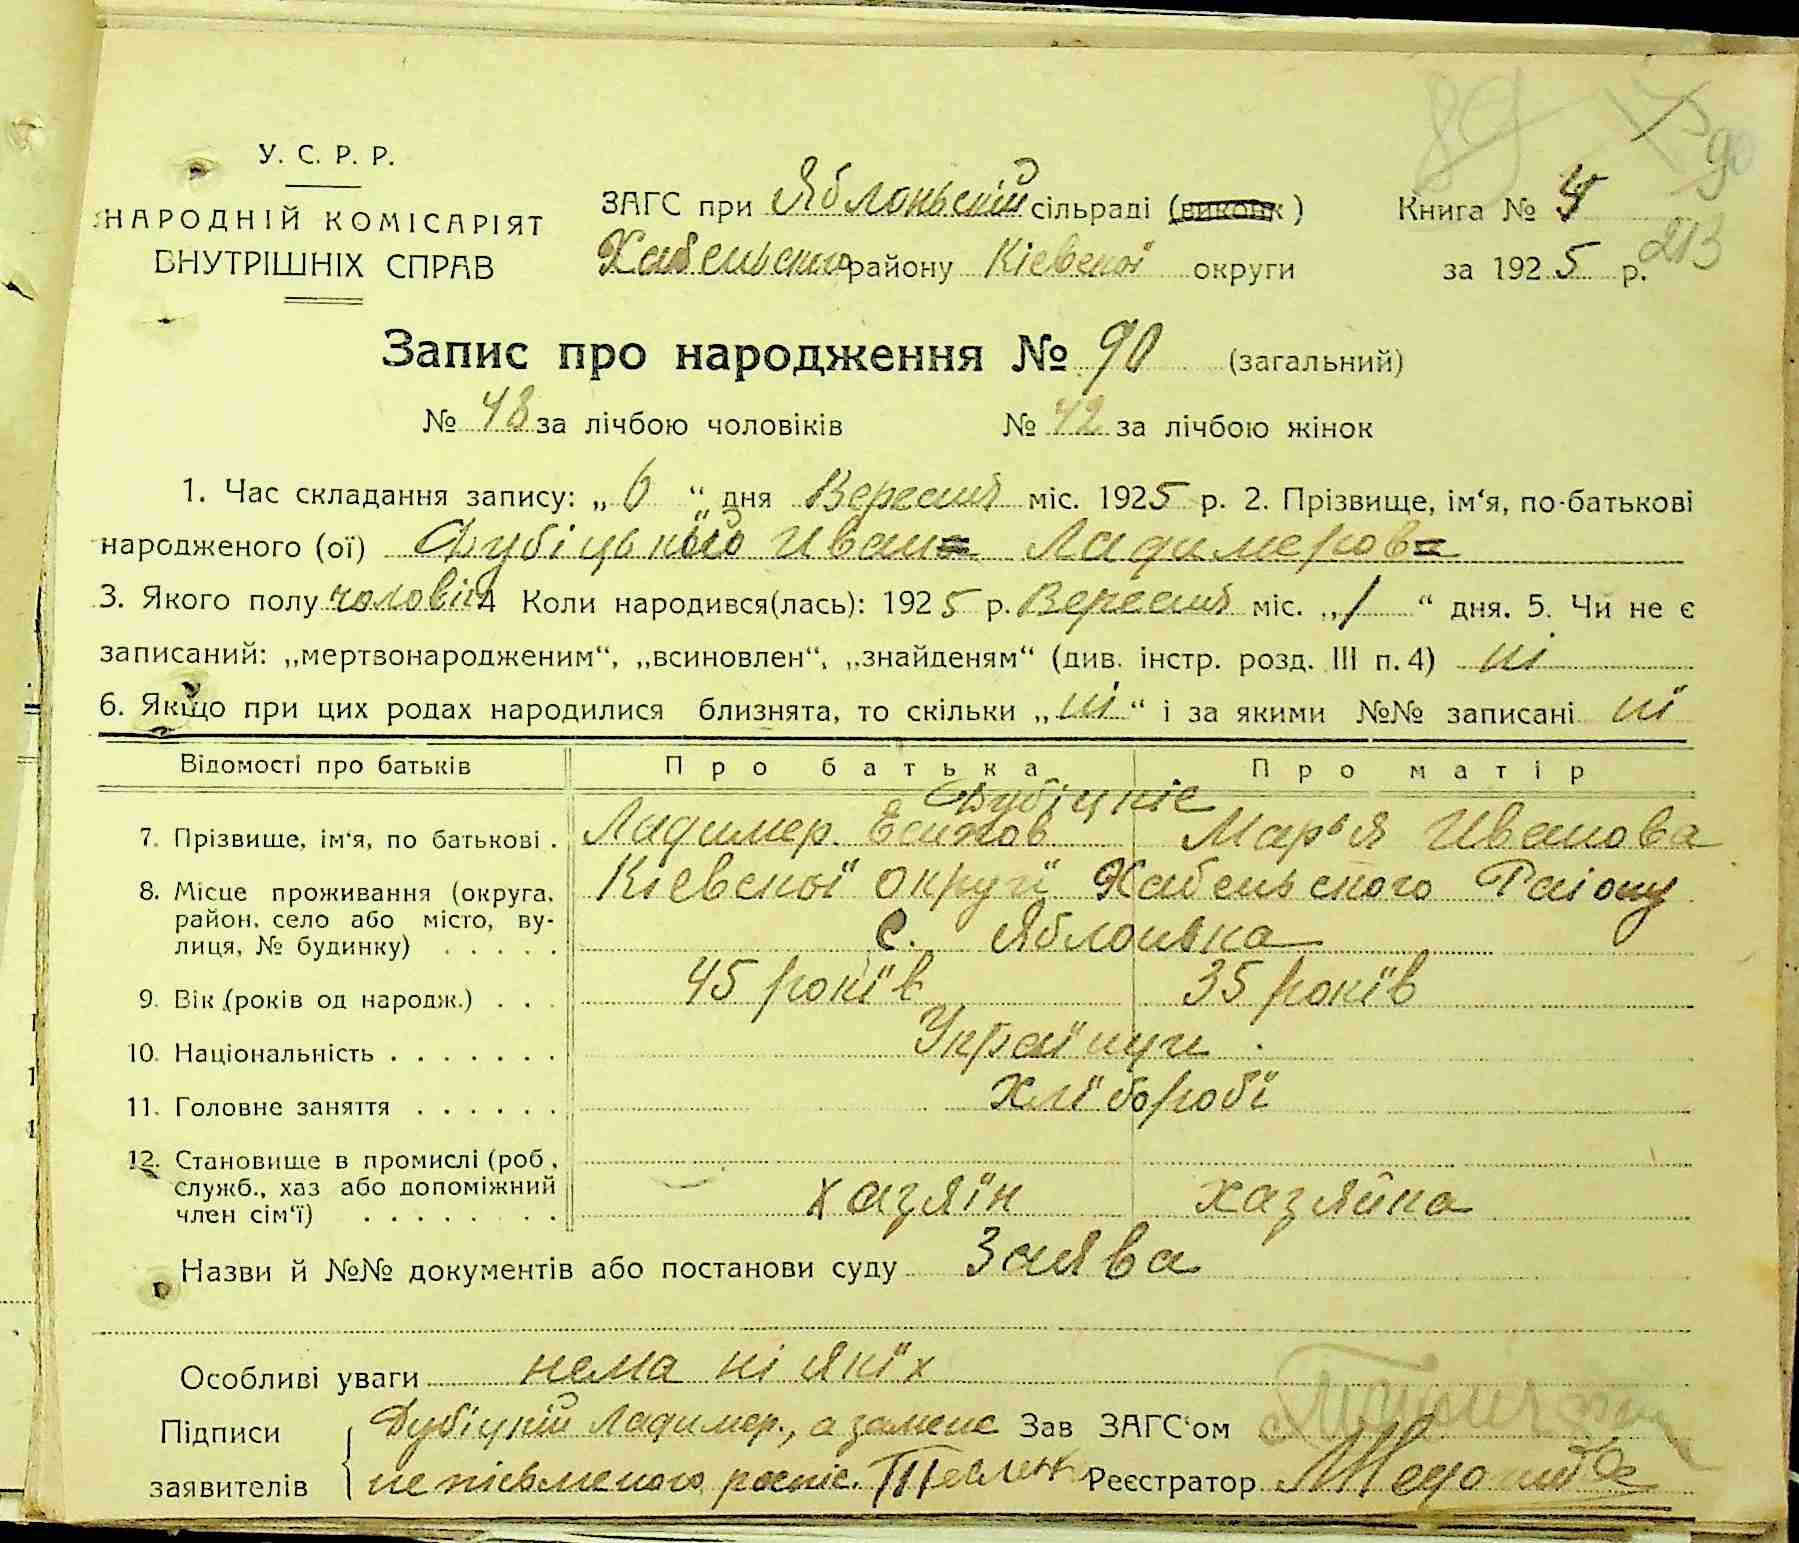 89 90
У. С. Р. Р.
НАРОДНІЙ КОМІСАРІЯТ
ВНУТРІШНІХ СПРАВ
ЗАГС при Яблоньскій сільраді (виконк)
Книга №
Хабеньского району Кіевскоі округи
за 1925 р. 213
Запис про народження № 90 (загальний)
№ 48 за лічбою чоловіків № 42 за лічбою жінок
1. Час складання запису: „ 6 “ дня Вересня міс. 1925 р. 2. Прізвище, ім‘я, по-батькові
народженого (ої) Дубіцького Иван Ладимеров
3. Якого полу чоловіч 4 Коли народився(лась): 1925 р. Вересня міс. „ 1 “ дня. 5. Чи не є
записаний: „мертвонародженим“, „всиновлен“, „знайденям“ (див. інстр. розд. III п. 4) ні
6. Якщо при цих родах народилися близнята, то скільки „ ні “ і за якими №№ записані ні
Відомості про батьків Про батька Про матір
Дубіцкіє
7. Прізвище, ім‘я, по батькові . Ладимер. Есипов Марья Иванова
8. Місце проживання (округа, Кіевскоі округи Хабеньского Раіону
район, село або місто, ву-
лиця, № будинку) . . . . . с. Яблонька
9. Вік (років од народж.) . . . 45 рокїв 35 рокїв
10. Національність . . . . . . . Українци
11. Головне заняття . . . . . . Хлїборобї
12. Становище в промислі (роб,
служб., хаз або допоміжний
член сім‘ї) . . . . . . . . хазяїн хазяйка
Назви й №№ документів або постанови суду Заява
Особливі уваги нема ні якїх
Підписи Дубіцкій Ладимер., а замене Зав ЗАГС‘ом
заявителів не пісьменого роспіс. Реєстратор